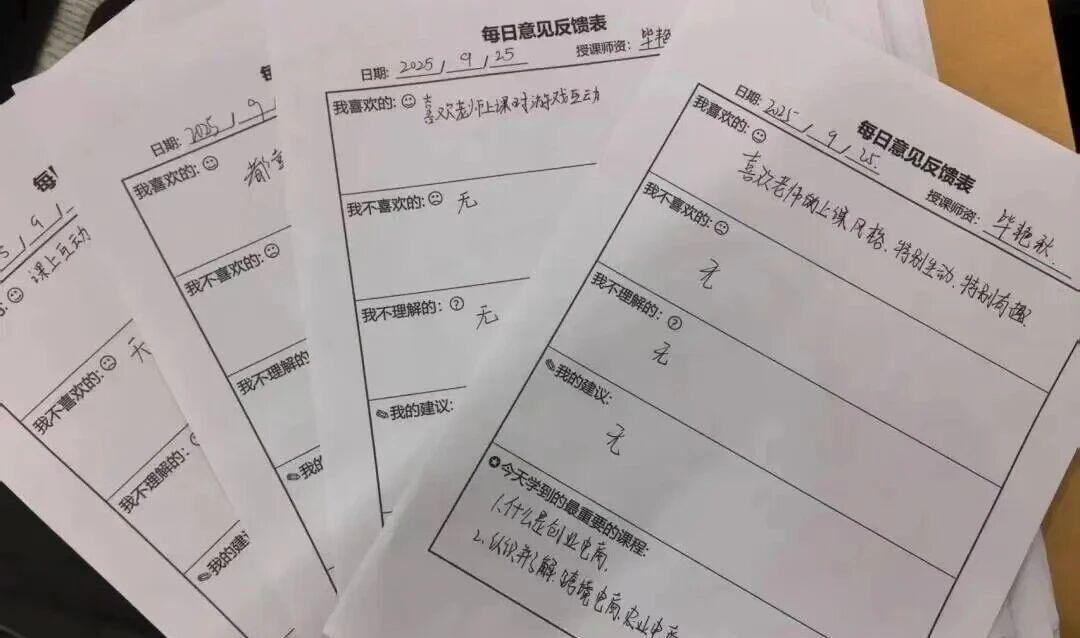 每
9
课上互动
我不喜欢的:
无
我不理解的:
我的建
每
日期: 2025 / 9
我喜欢的:
都
我不喜欢的:
我不理解的
我的
每日意见反馈表
日期: 2025 / 9 / 25
授课师资: 毕艳
我喜欢的: 喜欢老师上课时游戏互动
我不喜欢的: 无
我不理解的: 无
我的建议:
每日意见反馈表
日期: 2025 / 9 / 25.
授课师资: 毕艳秋.
我喜欢的:
喜欢老师的上课风格、特别生动、特别有趣.
我不喜欢的:
无
我不理解的:
无
我的建议:
无
今天学到的最重要的课程:
1.什么是创业电商.
2.认识并了解.跨境电商.农业电商